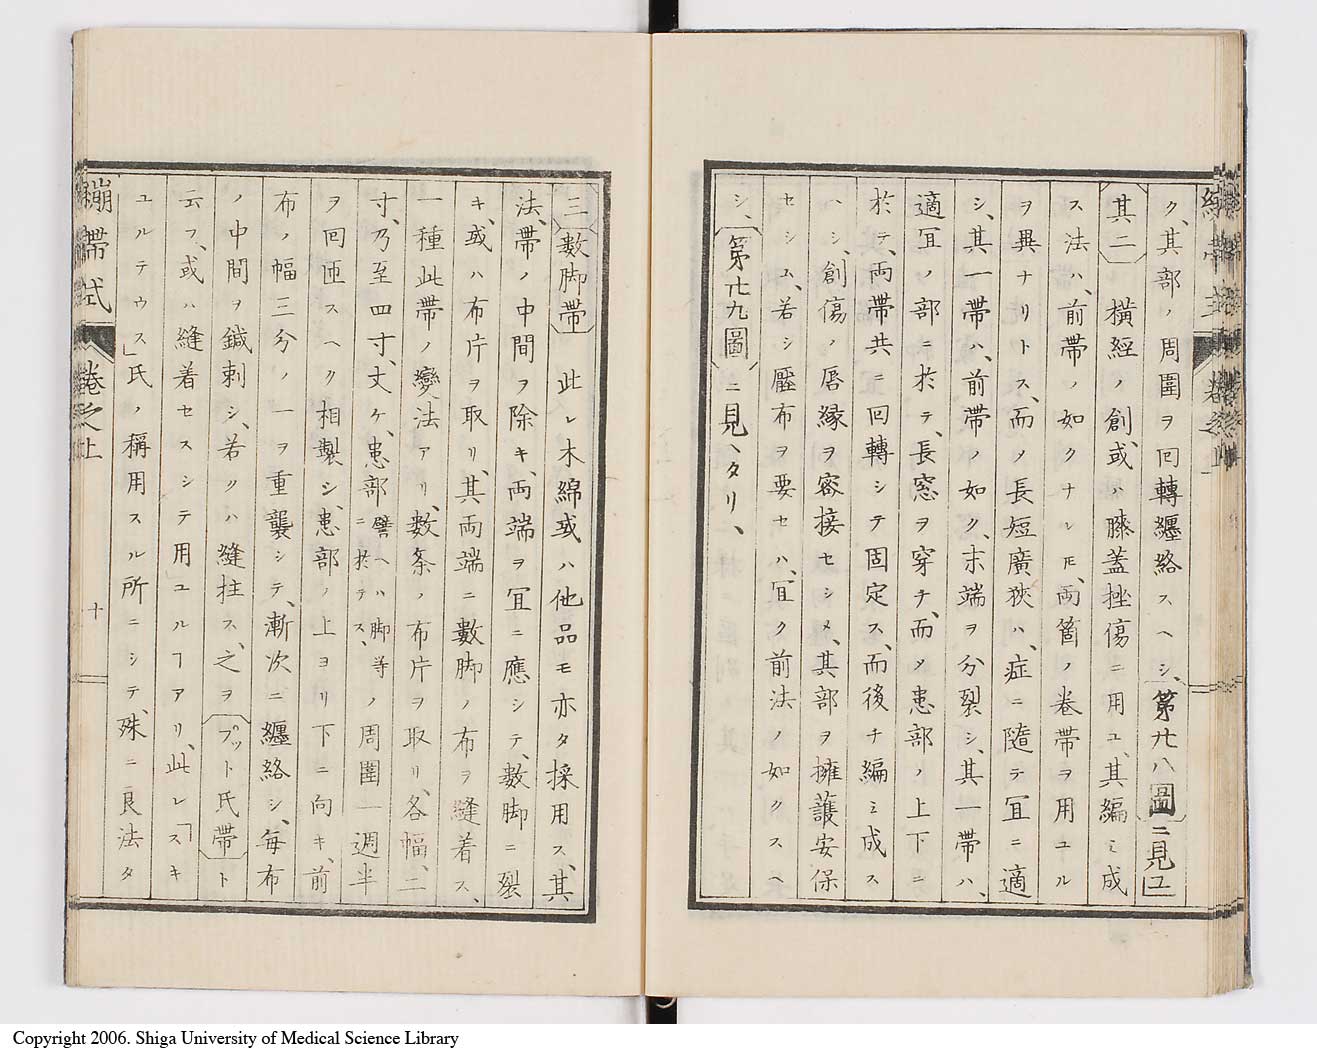 ク、其部ノ周圍ヲ回轉纒絡スヘシ、第廿八圖ニ見ユ
其二 橫經ノ創、或ハ膝蓋挫傷ニ用ユ、其編ミ成
ス法ハ、前帶ノ如クナレ𪜈、両箇ノ卷帶ヲ用ユル
ヲ異ナリトス、而ノ長短廣狹ハ、症ニ隨テ冝ニ適
シ、其一帶ハ、前帶ノ如ク、末端ヲ分裂シ、其一帶ハ、
適冝ノ部ニ於テ、長窓ヲ穿チ、而メ患部ノ上下ニ
於テ、両帶共ニ回轉シテ固定ス、而後チ編ミ成ス
ヘシ、創傷ノ唇縁ヲ密接セシメ、其部ヲ擁護安保
セシム、若シ壓布ヲ要セハ、冝ク前法ノ如クスヘ
シ、第廿九圖ニ見ヘタリ、
三 數脚帶 此レ木綿或ハ他品モ亦タ採用ス、其
法、帶ノ中間ヲ除キ、両端ヲ冝ニ應シテ、數脚ニ裂
キ、或ハ布片ヲ取リ、其両端ニ數脚ノ布ヲ縫着ス、
一種此帶ノ變法アリ、数条ノ布片ヲ取リ、各幅、二
寸、乃至四寸、丈ケ、患部譬ヘハ脚等ニ於テス、ノ周圍一週半
ヲ回匝スヘク相製シ、患部ノ上ヨリ下ニ向キ、前
布ノ幅三分ノ一ヲ重襲シテ、漸次ニ纒絡シ、毎布
ノ中間ヲ鍼刺シ、若クハ縫拄ス、之ヲプット氏帶ト
云フ、或ハ縫着セスシテ用ユルヿアリ、此レ「スキ
ユルテウス」氏ノ稱用スル所ニシテ、殊ニ良法タ
繃帶式 卷之上 十